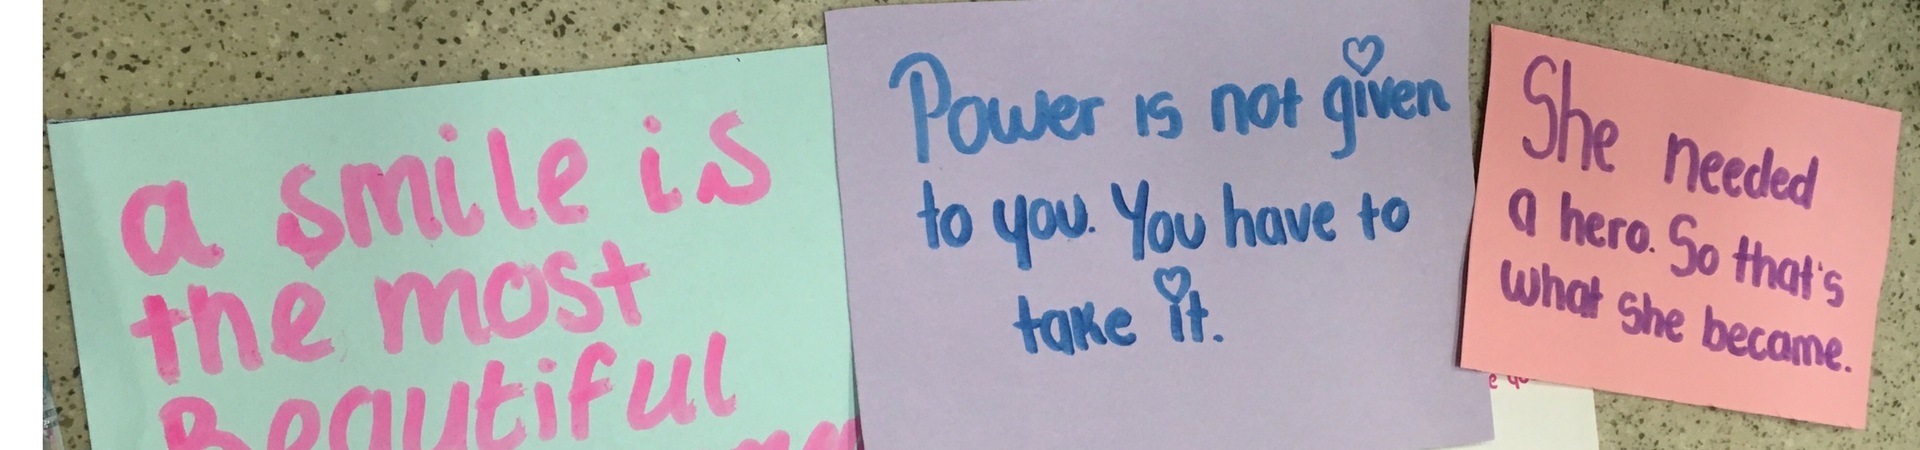 a smile is
the most
Beautiful
Power is not given
to you. You have to
take it.
She needed
a hero. So that's
what she became.